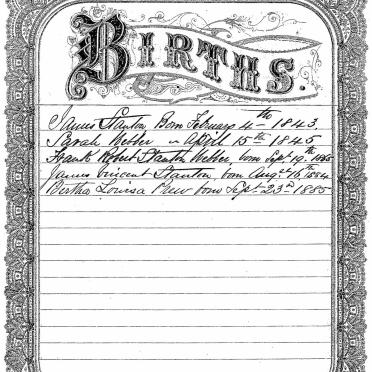 BIRTHS.
James Stanton Born February 4th 1843.
Sarah Webber " April 15th 1845
Frank Robert Stanton Webber, born Sept. 19th
James Vincent Stanton, born Augst 16th 1884
Bertha Louisa born Sept 23d 1885